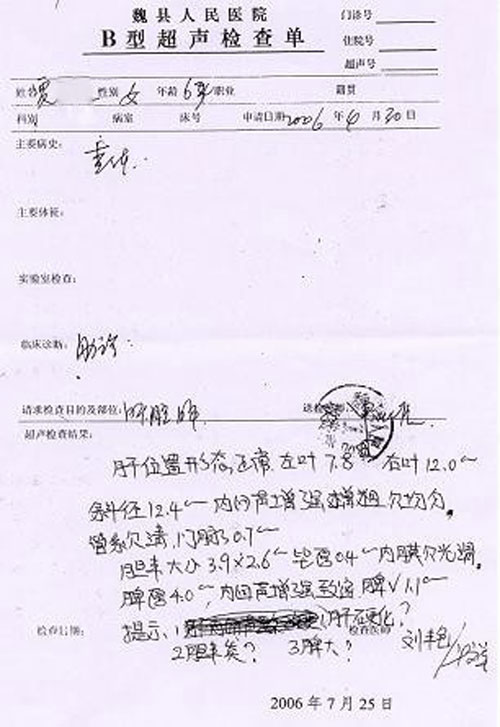 魏县人民医院
B型超声检查单
门诊号
住院号
超声号
姓名 贾 性别 女 年龄 6岁 职业 籍贯
科别 病室 床号 申请日期 2006 年 4 月 20 日
主要病史:
主要体征:
实验室检查:
临床诊断: 助诊
请求检查目的及部位: 肝胆脾
超声检查结果:
肝位置形态正常 左叶7.8 右叶12.0cm
斜径12.4cm 内回声增强增粗欠均匀。
管系欠清,门脉0.7cm
胆囊大小3.9×2.6cm 壁厚0.4cm 内膜欠光滑。
脾厚4.0cm,内回声增强致密 脾V 1.1cm
提示、1 肝硬化?
检查日期: 2胆囊炎? 3脾大? 检查医师
2006 年 7 月 25 日